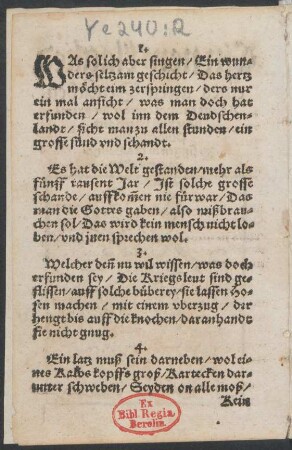 Ye 240:R
1.
WAs sol ich aber singen/Ein wun-
ders seltzam geschicht/Das hertz
möcht eim zerspringen/ders nur
ein mal ansicht/was man doch hat
erfunden/wol inn dem Deudschen-
landt/sicht man zu allen stunden/ein
grosse sünd vnd schandt.
2.
Es hat die Welt gestanden/mehr als
fünff tausent Jar/Ist solche grosse
schande/auffkom̃en nie fürwar/Das
man die Gottes gaben/also mißbrau-
chen sol/Das wird kein mensch nicht lo-
ben/vnd jnen sprechen wol.
3.
Welcher deñ nu wil wissen/was doch
erfunden sey/Die Kriegsleut sind ge-
flissen/auff solche büberey/sie lassen Ho-
sen machen/mit einem vberzug/der
hengt bis auff die knochen/daran handt
sie nicht gnug.
4.
Ein latz muß sein darneben/wol ei-
nes Kalbs kopffs groß/Kartecken dar-
unter schweben/Seyden on alle moß/
Kein
Ex
Bibl. Regia
Berolin.